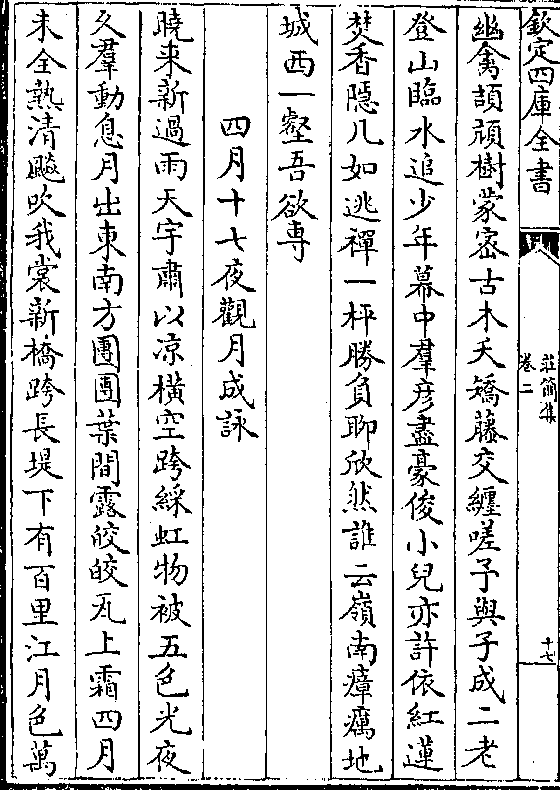 欽定四庫全書
莊簡集
卷二
十七
幽禽頡頏樹蒙密古木夭矯藤交纏嗟予與子成二老
登山臨水追少年幕中羣彦盡豪俊小兒亦許依紅蓮
焚香隱几如逃禪一枰勝負聊欣然誰云嶺南瘴癘地
城西一壑吾欲專
四月十七夜觀月成詠
曉來新過雨天宇肅以凉橫空跨綵虹物被五色光夜
久羣動息月出東南方團團葉間露皎皎瓦上霜四月
未全熱清飈吹我裳新橋跨長堤下有百里江月色萬